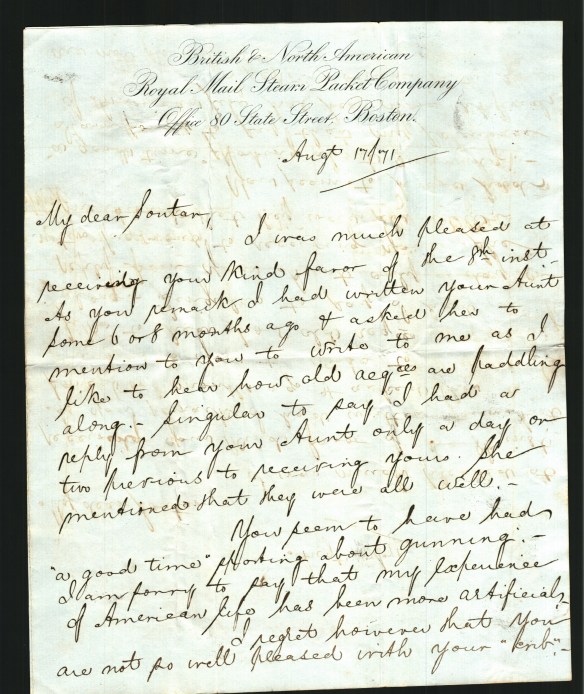 British & North American
Royal Mail Steam Packet Company
Office 80 State Street, Boston.
Augt 17/71
My dear Soutar,
I was much pleased at
receiving your kind favor of the 8th inst.
As you remark I had written your Aunt
some 6 or 8 months ago & asked her to
mention to you to write to me as I
like to hear how old acqces are paddling
along. - Singular to say I had a
reply from your Aunt only a day or
two previous to receiving yours. She
mentioned that they were all well. -
You seem to have had
"a good time" sporting about gunning. -
I am sorry to say that my experience
of American life has been more artificial -
I regret however that you
are not so well pleased with your "crib". -